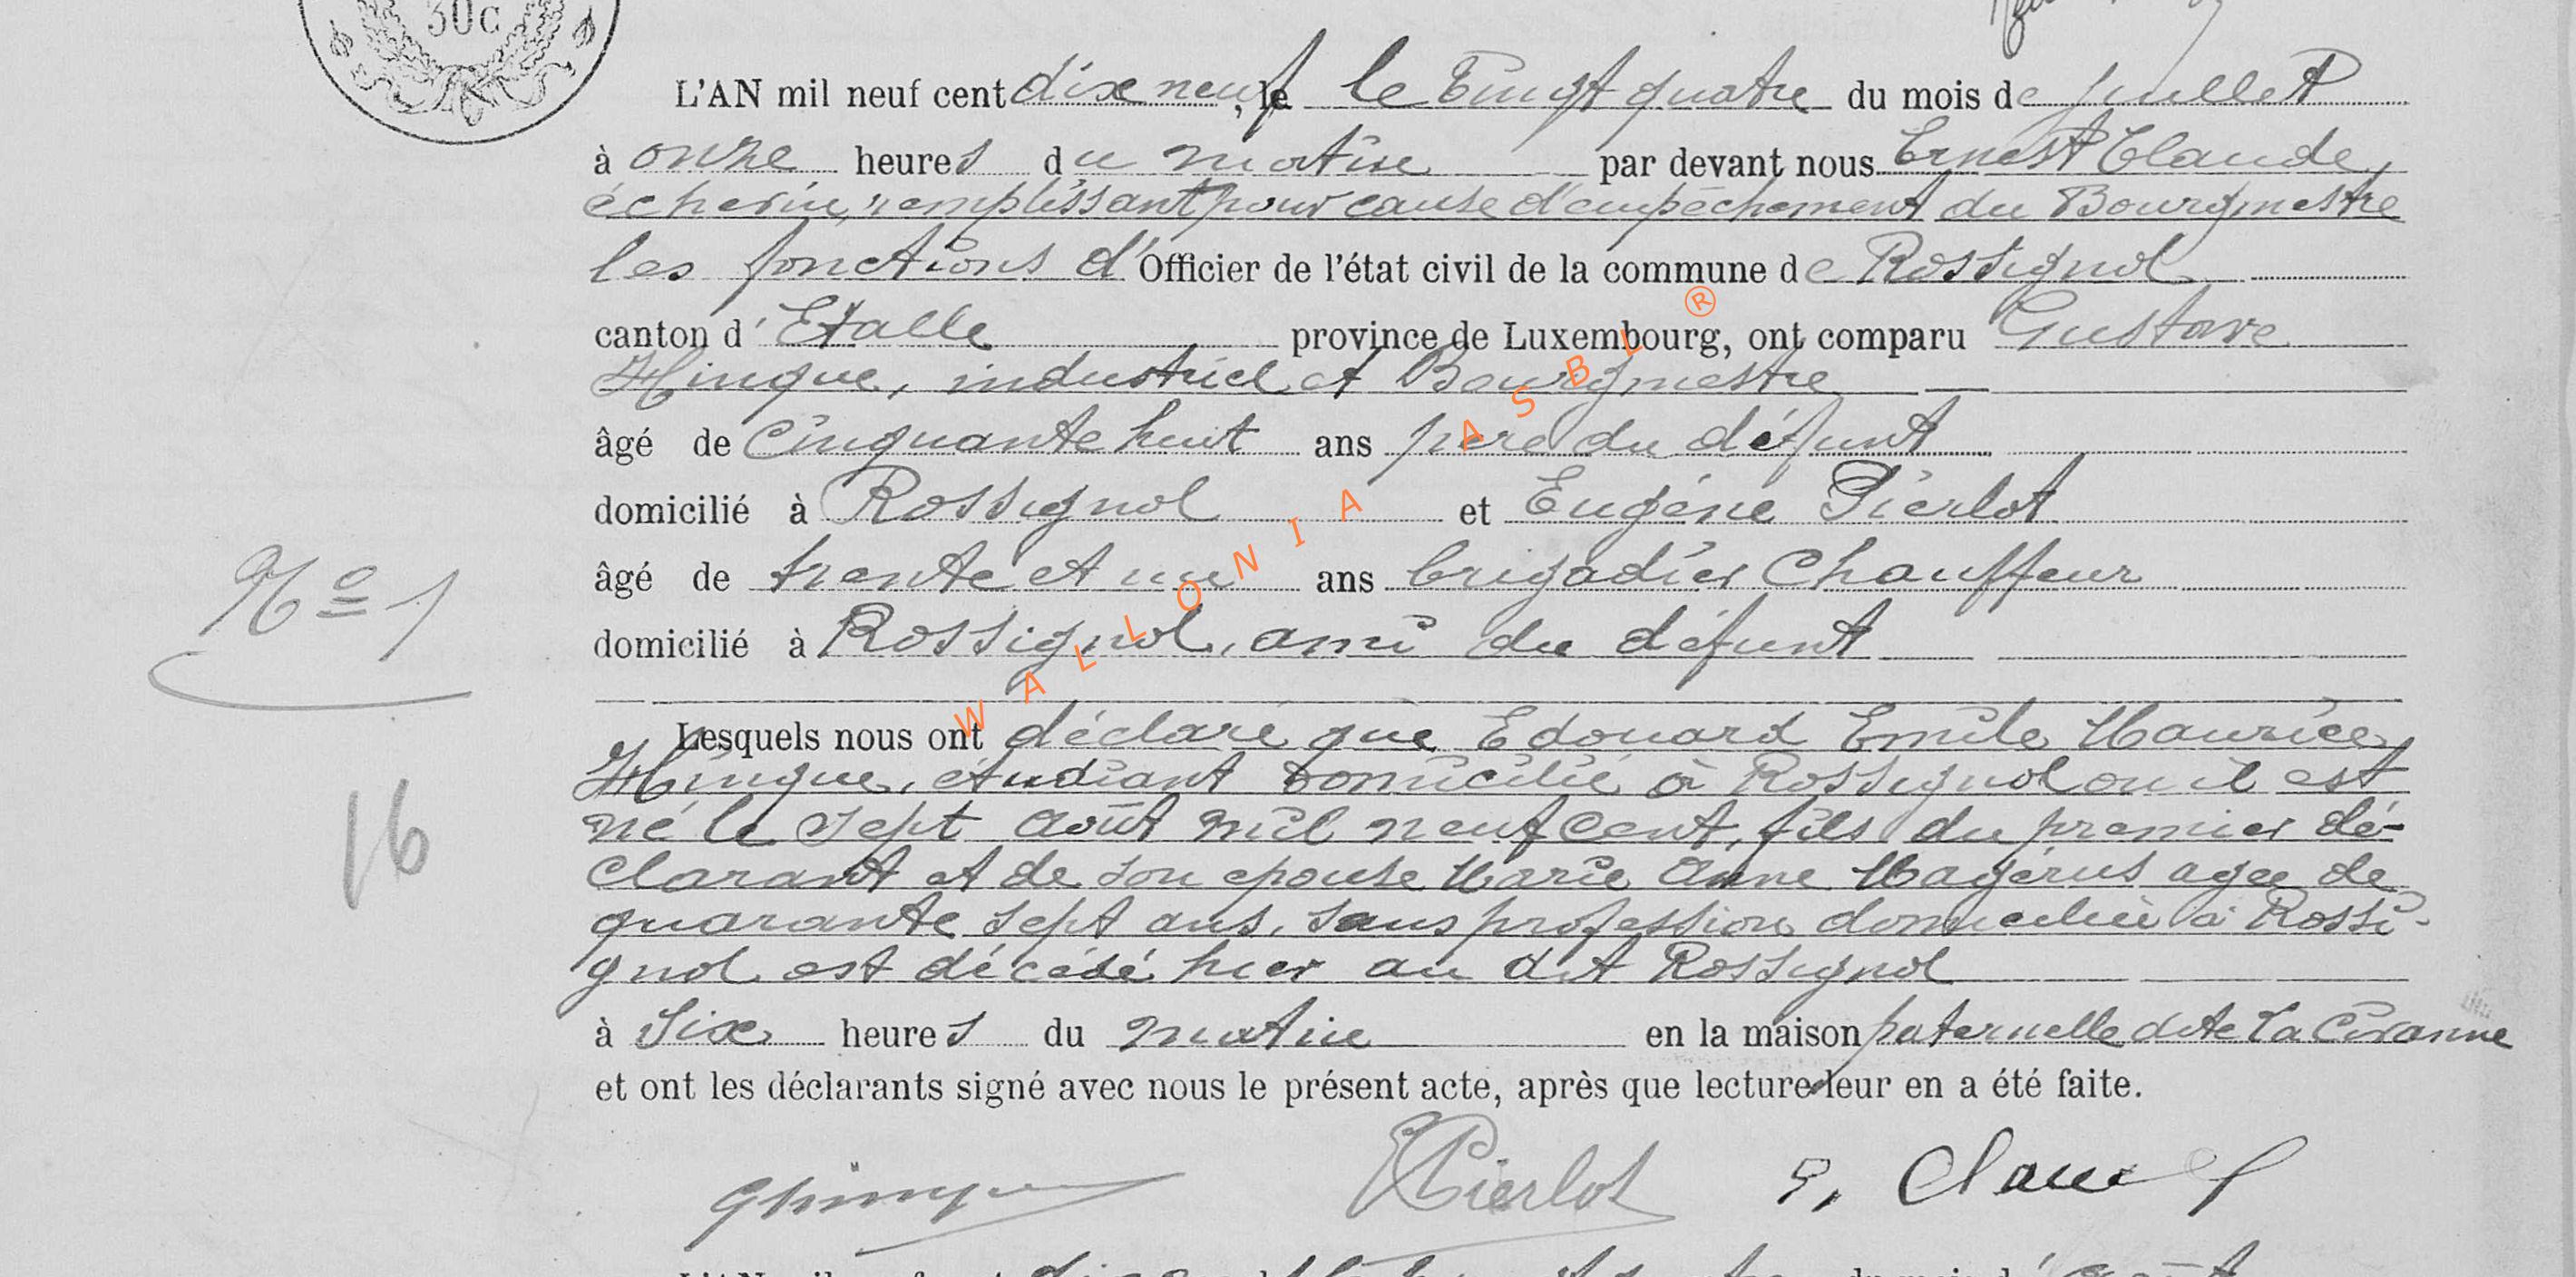 30c
L'AN mil neuf cent dix neuf, le le Vingt quatre du mois de juillet
à onze heures du matin par devant nous Ernest Claude,
échevin, remplissant pour cause d'empêchement du Bourgmestre
les fonctions d'Officier de l'état civil de la commune de Rossignol
canton d'Etalle province de Luxembourg, ont comparu Gustave
Hinque, industriel et Bourgmestre
âgé de Cinquante huit ans père du défunt
domicilié à Rossignol et Eugène Pierlot
âgé de trente et un ans brigadier Chauffeur
domicilié à Rossignol, ami du défunt
N° 1
Lesquels nous ont déclaré que Edouard Emile Maurice
Hinque, étudiant domicilié à Rossignol ou il est
né le sept août mil neuf cent, fils du premier dé-
clarant et de son epouse Marie Anne Magérus agee de
16
quarante sept ans, sans profession domiciliée à Rossi-
gnol est décédé hier au dit Rossignol
à Six heures du matin en la maison paternelle dite La Civanne
et ont les déclarants signé avec nous le présent acte, après que lecture leur en a été faite.
GHinque EPierlot E. Claude
WALLONIA ASBL ®